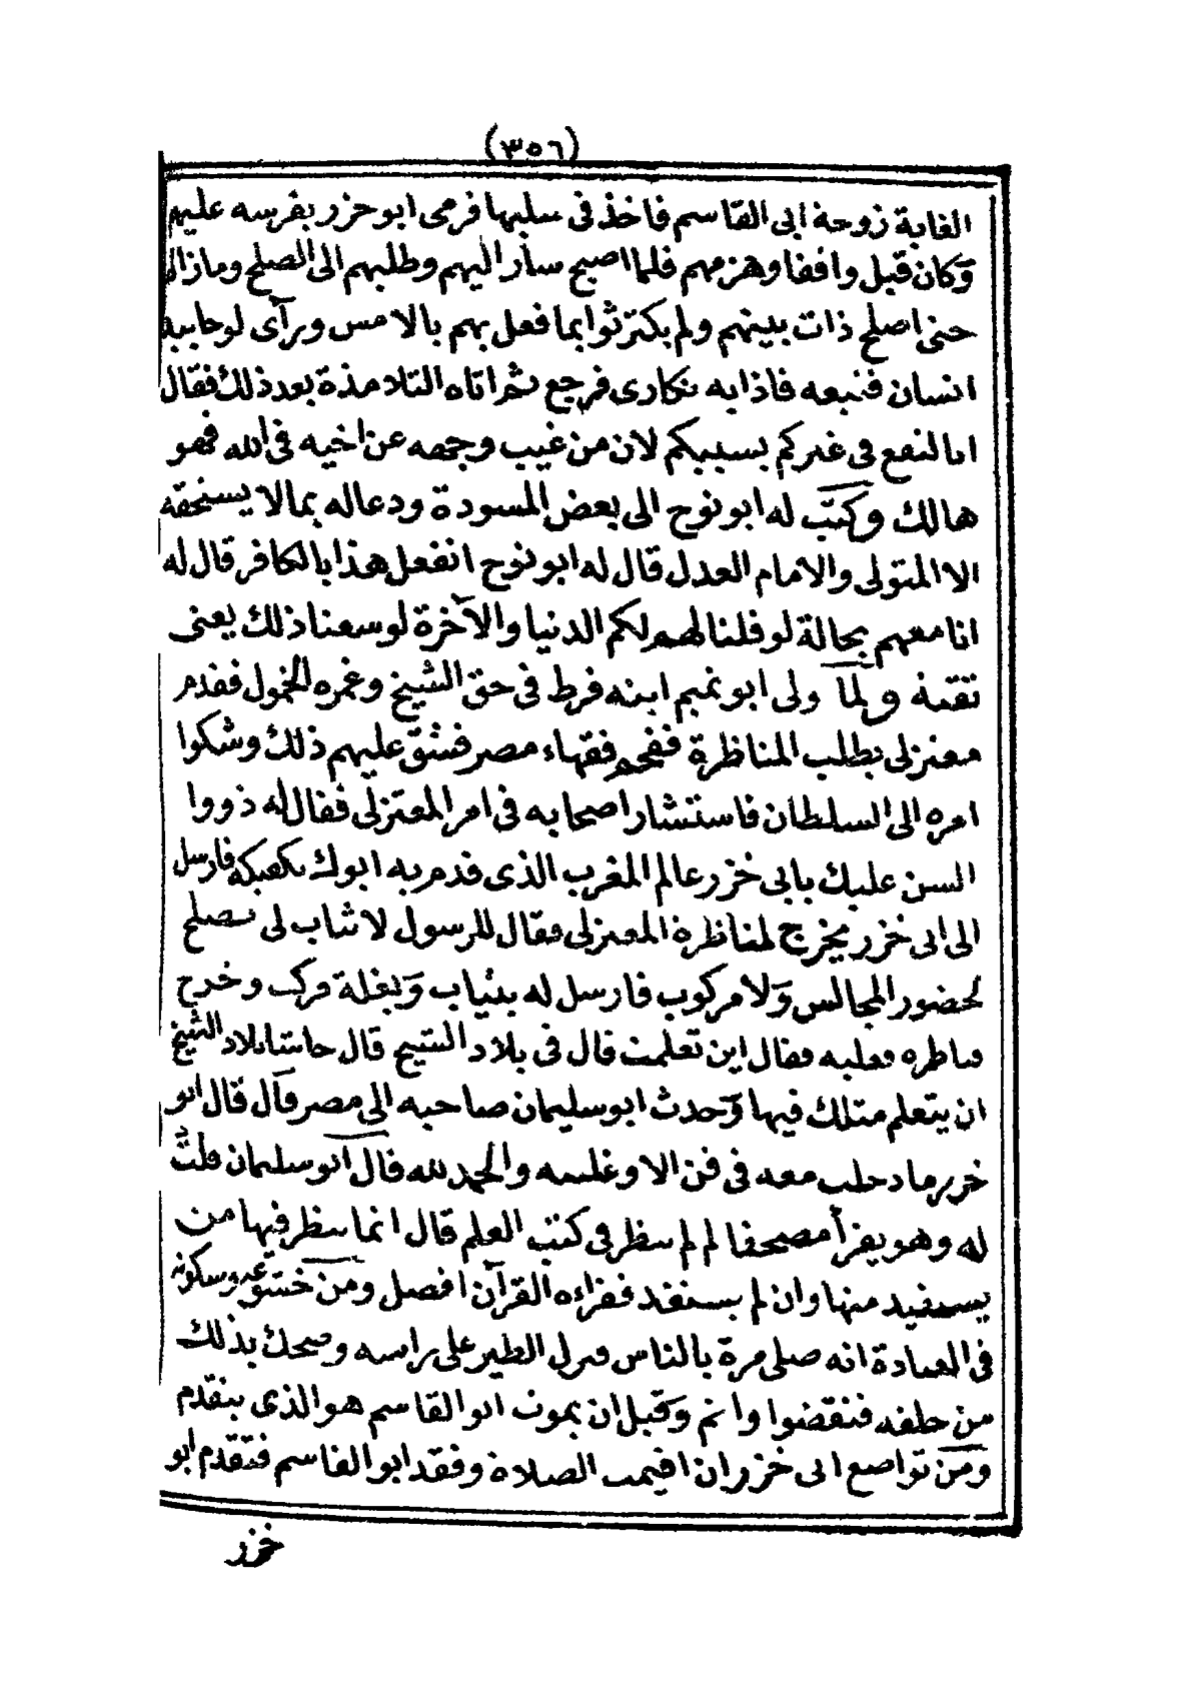 (٣٥٦)
الغاية زوجة ابى القاسم فاخذ فى سلبها فرمى ابو خزر بفرسه عليهم
وكان قبل واقفا وهزمهم فلما اصبح سار اليهم وطلبهم الى الصلح وما زال
حتى اصلح ذات بينهم ولم يكترثوا بما فعل بهم بالامس ورآى لوحا بيد
انسان فتبعه فاذا به نكارى فرجع ثم اتاه التلامذة بعد ذلك فقال
انا لنقع فى غيركم بسببكم لان من غيب وجهه عن اخيه فى الله فهو
هالك وكتب له ابو نوح الى بعض المسودة ودعا له بما لا يستحقه
الا المتولى والامام العدل قال له ابو نوح اتفعل هذا بالكافر قال له
انا معهم بحالة لو قلنا لهم لكم الدنيا والآخرة لوسعنا ذلك يعنى
تقية ولما ولى ابو تميم ابنه فرط فى حق الشيخ وغمره الخمول فقدم
معتزلى يطلب المناظرة ففحم فقهاء مصر فشق عليهم ذلك وشكوا
امره الى السلطان فاستشار اصحابه فى امر المعتزلى فقال له ذووا
السن عليك بابى خزر عالم المغرب الذى قدم به ابوك فارسل
الى ابى خزر يخرج لمناظرة المعتزلى فقال للرسول لا ثياب لى تصلح
لحضور المجالس ولا مركوب فارسل له بثياب وبغلة فركب وخرج
فناظره فغلبه فقال اين تعلمت قال فى بلاد الشيح قال حاشا بلاد الشيخ
ان يتعلم مثلك فيها وحدث ابو سليمان صاحبه الى مصر قال قال ابو
خزر ما دخلت معه فى فن الا وغلبته والحمد لله قال ابو سليمان قلت
له وهو يقرأ مصحفا لم لم تنظر فى كتب العلم قال انما ينظر فيها من
يستفيد منها وان لم يستفد فقراءة القرآن افضل ومن خشوعه وسكونه
فى العبادة انه صلى مرة بالناس فنزل الطير على راسه وضحك بذلك
من خلفه فنقضوا واتم وقبل ان يموت ابو القاسم هو الذى يتقدم
ومن تواضع ابى خزر ان اقيمت الصلاة وفقد ابو القاسم فتقدم ابو
خزر